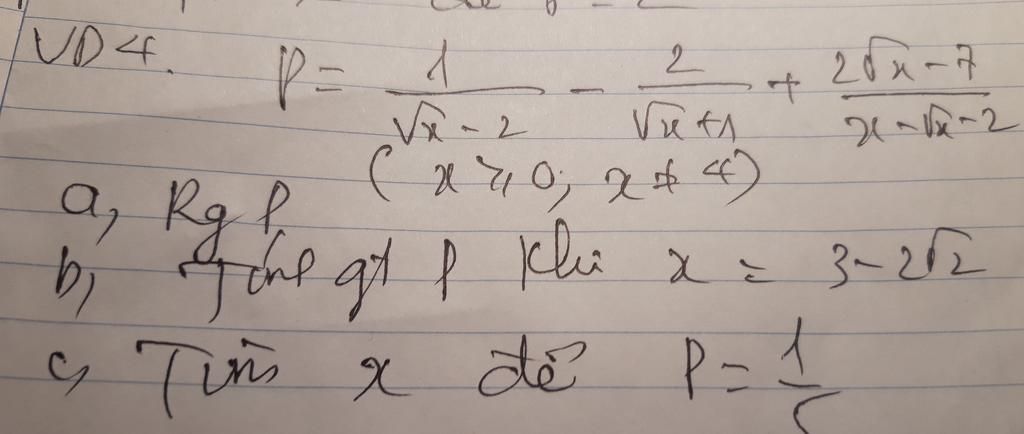 VD4. P = 1/(√x - 2) - 2/(√x + 1) + (2√x - 7)/(x - √x - 2)
(x ≥ 0; x ≠ 4)
a, Rg P
b, Tính gt P khi x = 3 - 2√2
c, Tìm x để P = 1/